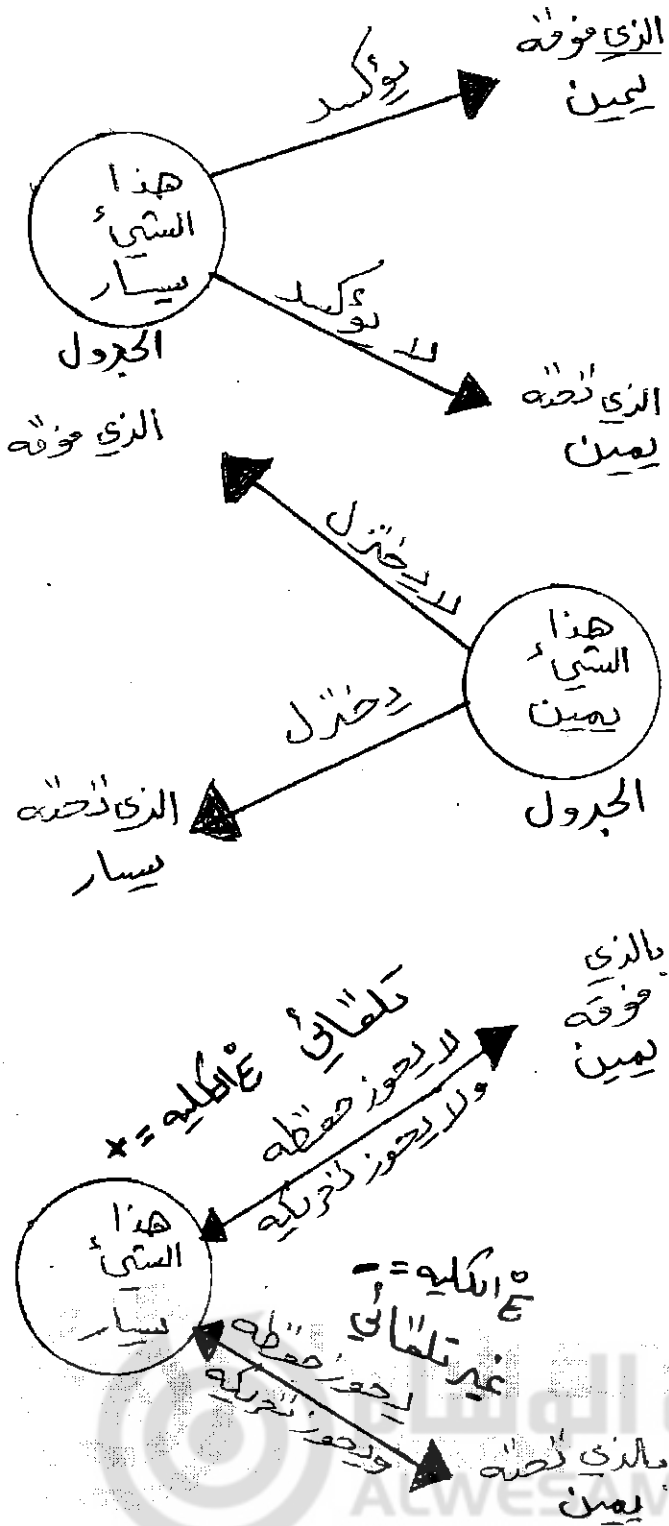 الذي فوقه
يمين
يؤكسد
هذا
الشيئ
يسار
الجدول
لا يؤكسد
الذي تحته
يمين
الذي فوقه
لا يختزل
هذا
الشيئ
يمين
الجدول
يختزل
الذي تحته
يسار
بالذي
فوقه
يمين
تلقائي
E° الكليه = +
لا يجوز حفظه
ولا يجوز تحريكه
هذا
الشيئ
يسار
E° الكليه = -
غير تلقائي
يجوز حفظه
ويجوز تحريكه
بالذي تحته
يمين
الوسام
ALWESAM